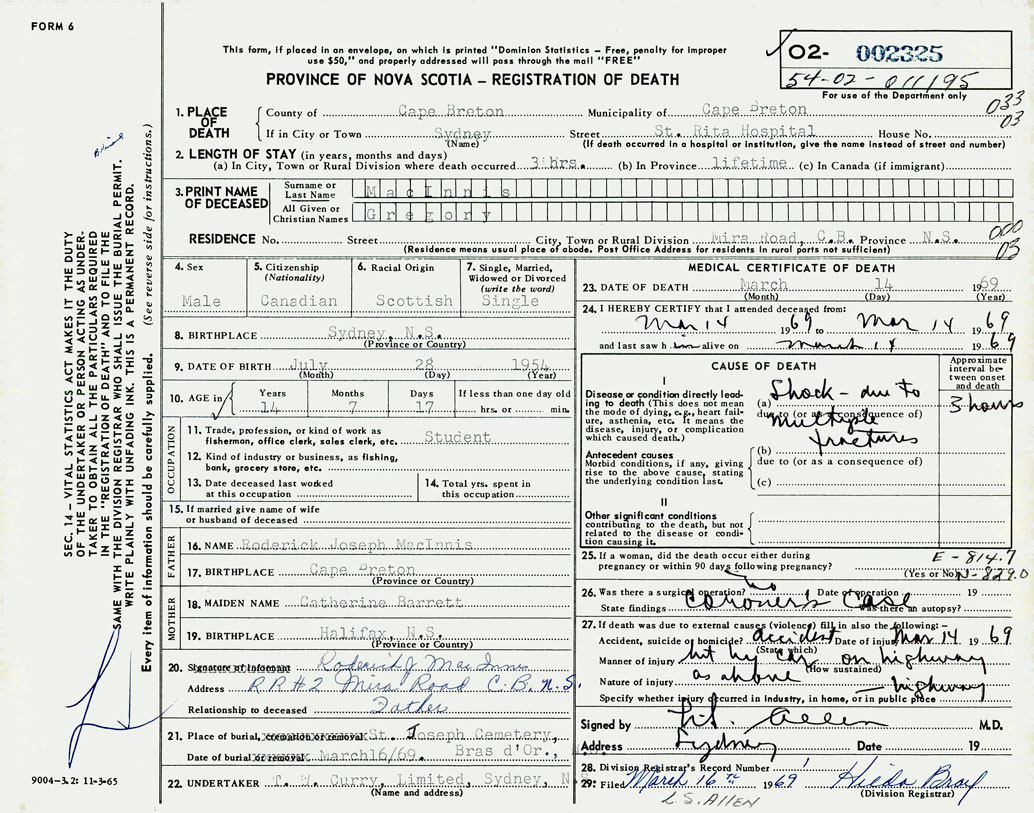 FORM 6
This form, if placed in an envelope, on which is printed "Dominion Statistics – Free, penalty for improper
use $50," and properly addressed will pass through the mail "FREE"
PROVINCE OF NOVA SCOTIA – REGISTRATION OF DEATH
02- 002325
54-02-011195
For use of the Department only
033
03
1. PLACE OF DEATH
County of Cape Breton Municipality of Cape Breton
If in City or Town Sydney Street St. Rita Hospital House No.
(Name) (If death occurred in a hospital or institution, give the name instead of street and number)
2. LENGTH OF STAY (in years, months and days)
(a) In City, Town or Rural Division where death occurred 3 hrs. (b) In Province lifetime (c) In Canada (if immigrant)
3. PRINT NAME OF DECEASED
Surname or Last Name MacInnis
All Given or Christian Names Gregory
RESIDENCE No. Street City, Town or Rural Division Mira Road, C.B. Province N.S.
(Residence means usual place of abode. Post Office Address for residents in rural parts not sufficient)
000
03
4. Sex
Male
5. Citizenship (Nationality)
Canadian
6. Racial Origin
Scottish
7. Single, Married, Widowed or Divorced (write the word)
Single
8. BIRTHPLACE Sydney, N.S.
(Province or Country)
9. DATE OF BIRTH July 28 1954
(Month) (Day) (Year)
10. AGE in Years Months Days If less than one day old
14 7 17 hrs. or min.
OCCUPATION
11. Trade, profession, or kind of work as
fisherman, office clerk, sales clerk, etc. Student
12. Kind of industry or business, as fishing,
bank, grocery store, etc.
13. Date deceased last worked
at this occupation
14. Total yrs. spent in
this occupation
15. If married give name of wife
or husband of deceased
FATHER
16. NAME Roderick Joseph MacInnis
17. BIRTHPLACE Cape Breton
(Province or Country)
MOTHER
18. MAIDEN NAME Catherine Barrett
19. BIRTHPLACE Halifax, N.S.
(Province or Country)
20. Signature of informant Roderick J MacInnis
Address R R #2 Mira Road C.B. N.S.
Relationship to deceased Father
21. Place of burial, cremation or removal St. Joseph Cemetery,
Date of burial or removal March16/69. Bras d'Or.,
22. UNDERTAKER T. W. Curry, Limited, Sydney, N.S.
(Name and address)
MEDICAL CERTIFICATE OF DEATH
23. DATE OF DEATH March 14 1969
(Month) (Day) (Year)
24. I HEREBY CERTIFY that I attended deceased from:
Mar 14 1969 to Mar 14 1969
and last saw him alive on March 14 1969
CAUSE OF DEATH
Approximate interval between onset and death
I
Disease or condition directly leading to death (This does not mean the mode of dying, e.g., heart failure, asthenia, etc. It means the disease, injury, or complication which caused death.)
(a) Shock – due to
due to (or as a consequence of)
multiple
fractures
3 hours
Antecedent causes
Morbid conditions, if any, giving rise to the above cause, stating the underlying condition last.
(b)
due to (or as a consequence of)
(c)
II
Other significant conditions
contributing to the death, but not related to the disease or condition causing it.
25. If a woman, did the death occur either during
pregnancy or within 90 days following pregnancy?
(Yes or No)
E - 814.7
N-829.0
26. Was there a surgical operation? no Date of operation 19
State findings Coroner's Case Was there an autopsy?
27. If death was due to external causes (violence) fill in also the following:–
Accident, suicide or homicide? accident Date of injury Mar 14 1969
(State which)
Manner of injury hit by car on highway
(How sustained)
Nature of injury as above
Specify whether injury occurred in Industry, in home, or in public place – highway
Signed by Allen M.D.
Address Sydney Date 19
28. Division Registrar's Record Number
29. Filed March 16th 1969 Hilda Bray
(Division Registrar)
L.S. ALLEN
SEC. 14 – VITAL STATISTICS ACT MAKES IT THE DUTY
OF THE UNDERTAKER OR PERSON ACTING AS UNDER-
TAKER TO OBTAIN ALL THE PARTICULARS REQUIRED
IN THE "REGISTRATION OF DEATH" AND TO FILE THE
SAME WITH THE DIVISION REGISTRAR WHO SHALL ISSUE THE BURIAL PERMIT.
WRITE PLAINLY WITH UNFADING INK. THIS IS A PERMANENT RECORD.
Every item of information should be carefully supplied. (See reverse side for instructions.)
9004-3.2: 11-3-65